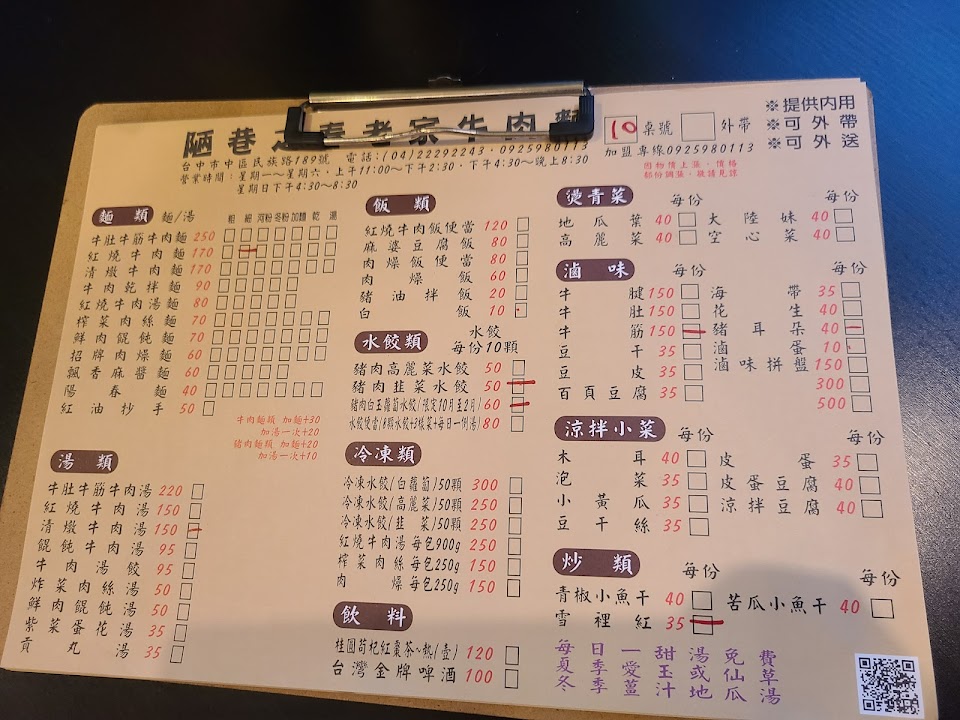 陋巷之春老家牛肉麵
台中市中區民族路189號 電話:(04)22292243．0925980113
營業時間：星期一～星期六．上午11:00～下午2:30．下午4:30～晚上8:30
星期日下午4:30～8:30
10 桌號 外帶
加盟專線0925980113
因物價上漲．價格
部份調漲．敬請見諒
※提供內用
※可外帶
※可外送
麵類 麵/湯 粗 細 河粉 冬粉 加麵 乾 湯
牛肚牛筋牛肉麵 250
紅燒牛肉麵 170
清燉牛肉麵 170
牛肉乾拌麵 90
紅燒牛肉湯麵 80
榨菜肉絲麵 70
鮮肉餛飩麵 70
招牌肉燥麵 60
飄香麻醬麵 60
陽春麵 40
紅油抄手 50
牛肉麵類 加麵+30
加湯一次+20
豬肉麵類 加麵+20
加湯一次+10
湯類
牛肚牛筋牛肉湯 220
紅燒牛肉湯 150
清燉牛肉湯 150
餛飩牛肉湯 95
牛肉湯餃 95
炸菜肉絲湯 50
鮮肉餛飩湯 50
紫菜蛋花湯 35
貢丸湯 35
飯類
紅燒牛肉飯便當 120
麻婆豆腐飯 80
肉燥飯便當 80
肉燥飯 60
豬油拌飯 20
白飯 10
水餃類 水餃
每份10顆
豬肉高麗菜水餃 50
豬肉韭菜水餃 50
豬肉白玉蘿蔔水餃/(限定10月至2月) 60
水餃便當(8顆水餃+3樣菜+每日一例湯) 80
冷凍類
冷凍水餃(白蘿蔔)50顆 300
冷凍水餃(高麗菜)50顆 250
冷凍水餃(韭菜)50顆 250
紅燒牛肉湯每包900g 250
榨菜肉絲每包250g 150
肉燥每包250g 150
飲料
桂圓苟杞紅棗茶~熱(壺) 120
台灣金牌啤酒 100
燙青菜 每份 每份
地瓜葉 40 大陸妹 40
高麗菜 40 空心菜 40
滷味 每份 每份
牛腱 150 海帶 35
牛肚 150 花生 40
牛筋 150 豬耳朵 40
豆干 35 滷蛋 10
豆皮 35 滷味拼盤 150
百頁豆腐 35 300
500
涼拌小菜 每份 每份
木耳 40 皮蛋 35
泡菜 35 皮蛋豆腐 40
小黃瓜 35 涼拌豆腐 40
豆干絲 35
炒類 每份 每份
青椒小魚干 40 苦瓜小魚干 40
雪裡紅 35
每日一甜湯免費
夏季愛玉或仙草
冬季薑汁地瓜湯